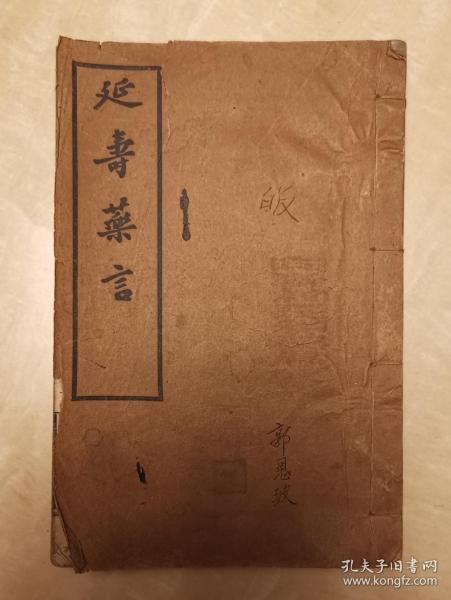 延壽藥言
郭恩波
孔夫子旧书网
www.kongfz.com